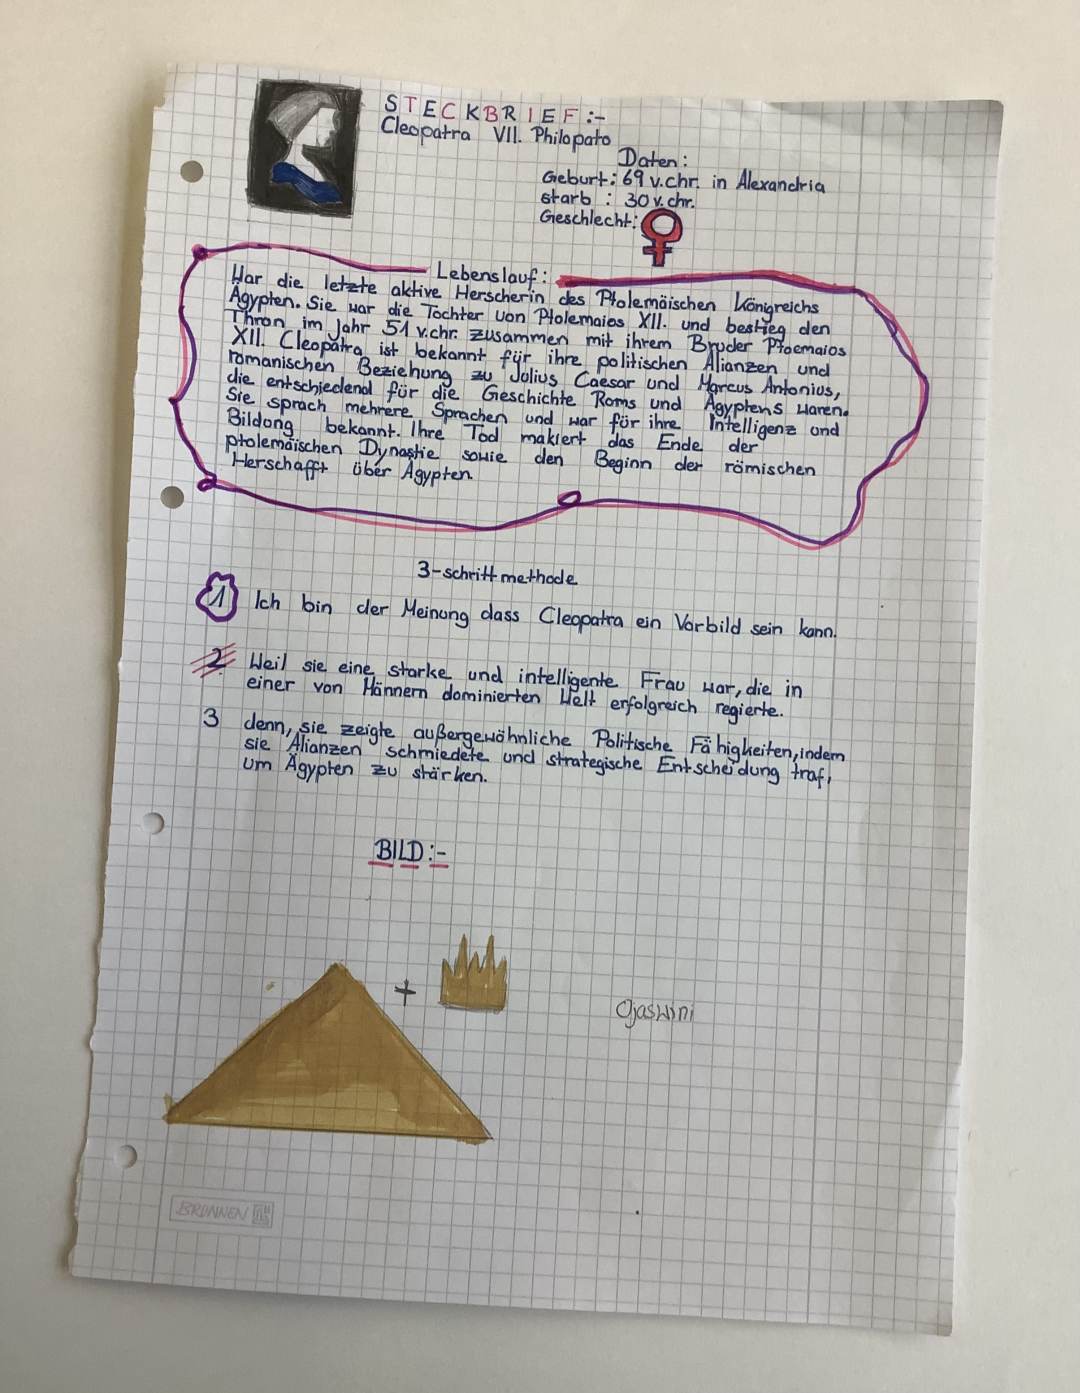 STECKBRIEF:-
Cleopatra VII. Philopato
Daten:
Geburt: 69 v.chr. in Alexandria
starb : 30 v.chr.
Gieschlecht:
Lebenslauf:
War die letzte aktive Herscherin des Ptolemäischen Königreichs
Ägypten. Sie war die Tochter von Ptolemaios XII. und bestieg den
Thron im Jahr 51 v.chr. zusammen mit ihrem Bruder Ptoemaios
XII. Cleopatra ist bekannt für ihre politischen Alianzen und
romanischen Beziehung zu Julius Caesar und Marcus Antonius,
die entschiedend für die Geschichte Roms und Ägyptens waren.
Sie sprach mehrere Sprachen und war für ihre Intelligenz und
Bildung bekannt. Ihre Tod makiert das Ende der
ptolemäischen Dynastie sowie den Beginn der römischen
Herschafft über Ägypten.
3-schrittmethode
1 Ich bin der Meinung dass Cleopatra ein Vorbild sein kann.
2 Weil sie eine starke und intelligente Frau war, die in
einer von Männern dominierten Welt erfolgreich regierte.
3 denn, sie zeigte außergewöhnliche Politische Fähigkeiten, indem
sie Alianzen schmiedete und strategische Entscheidung traf,
um Ägypten zu stärken.
BILD:-
+
Ojaswini
BRUNNEN